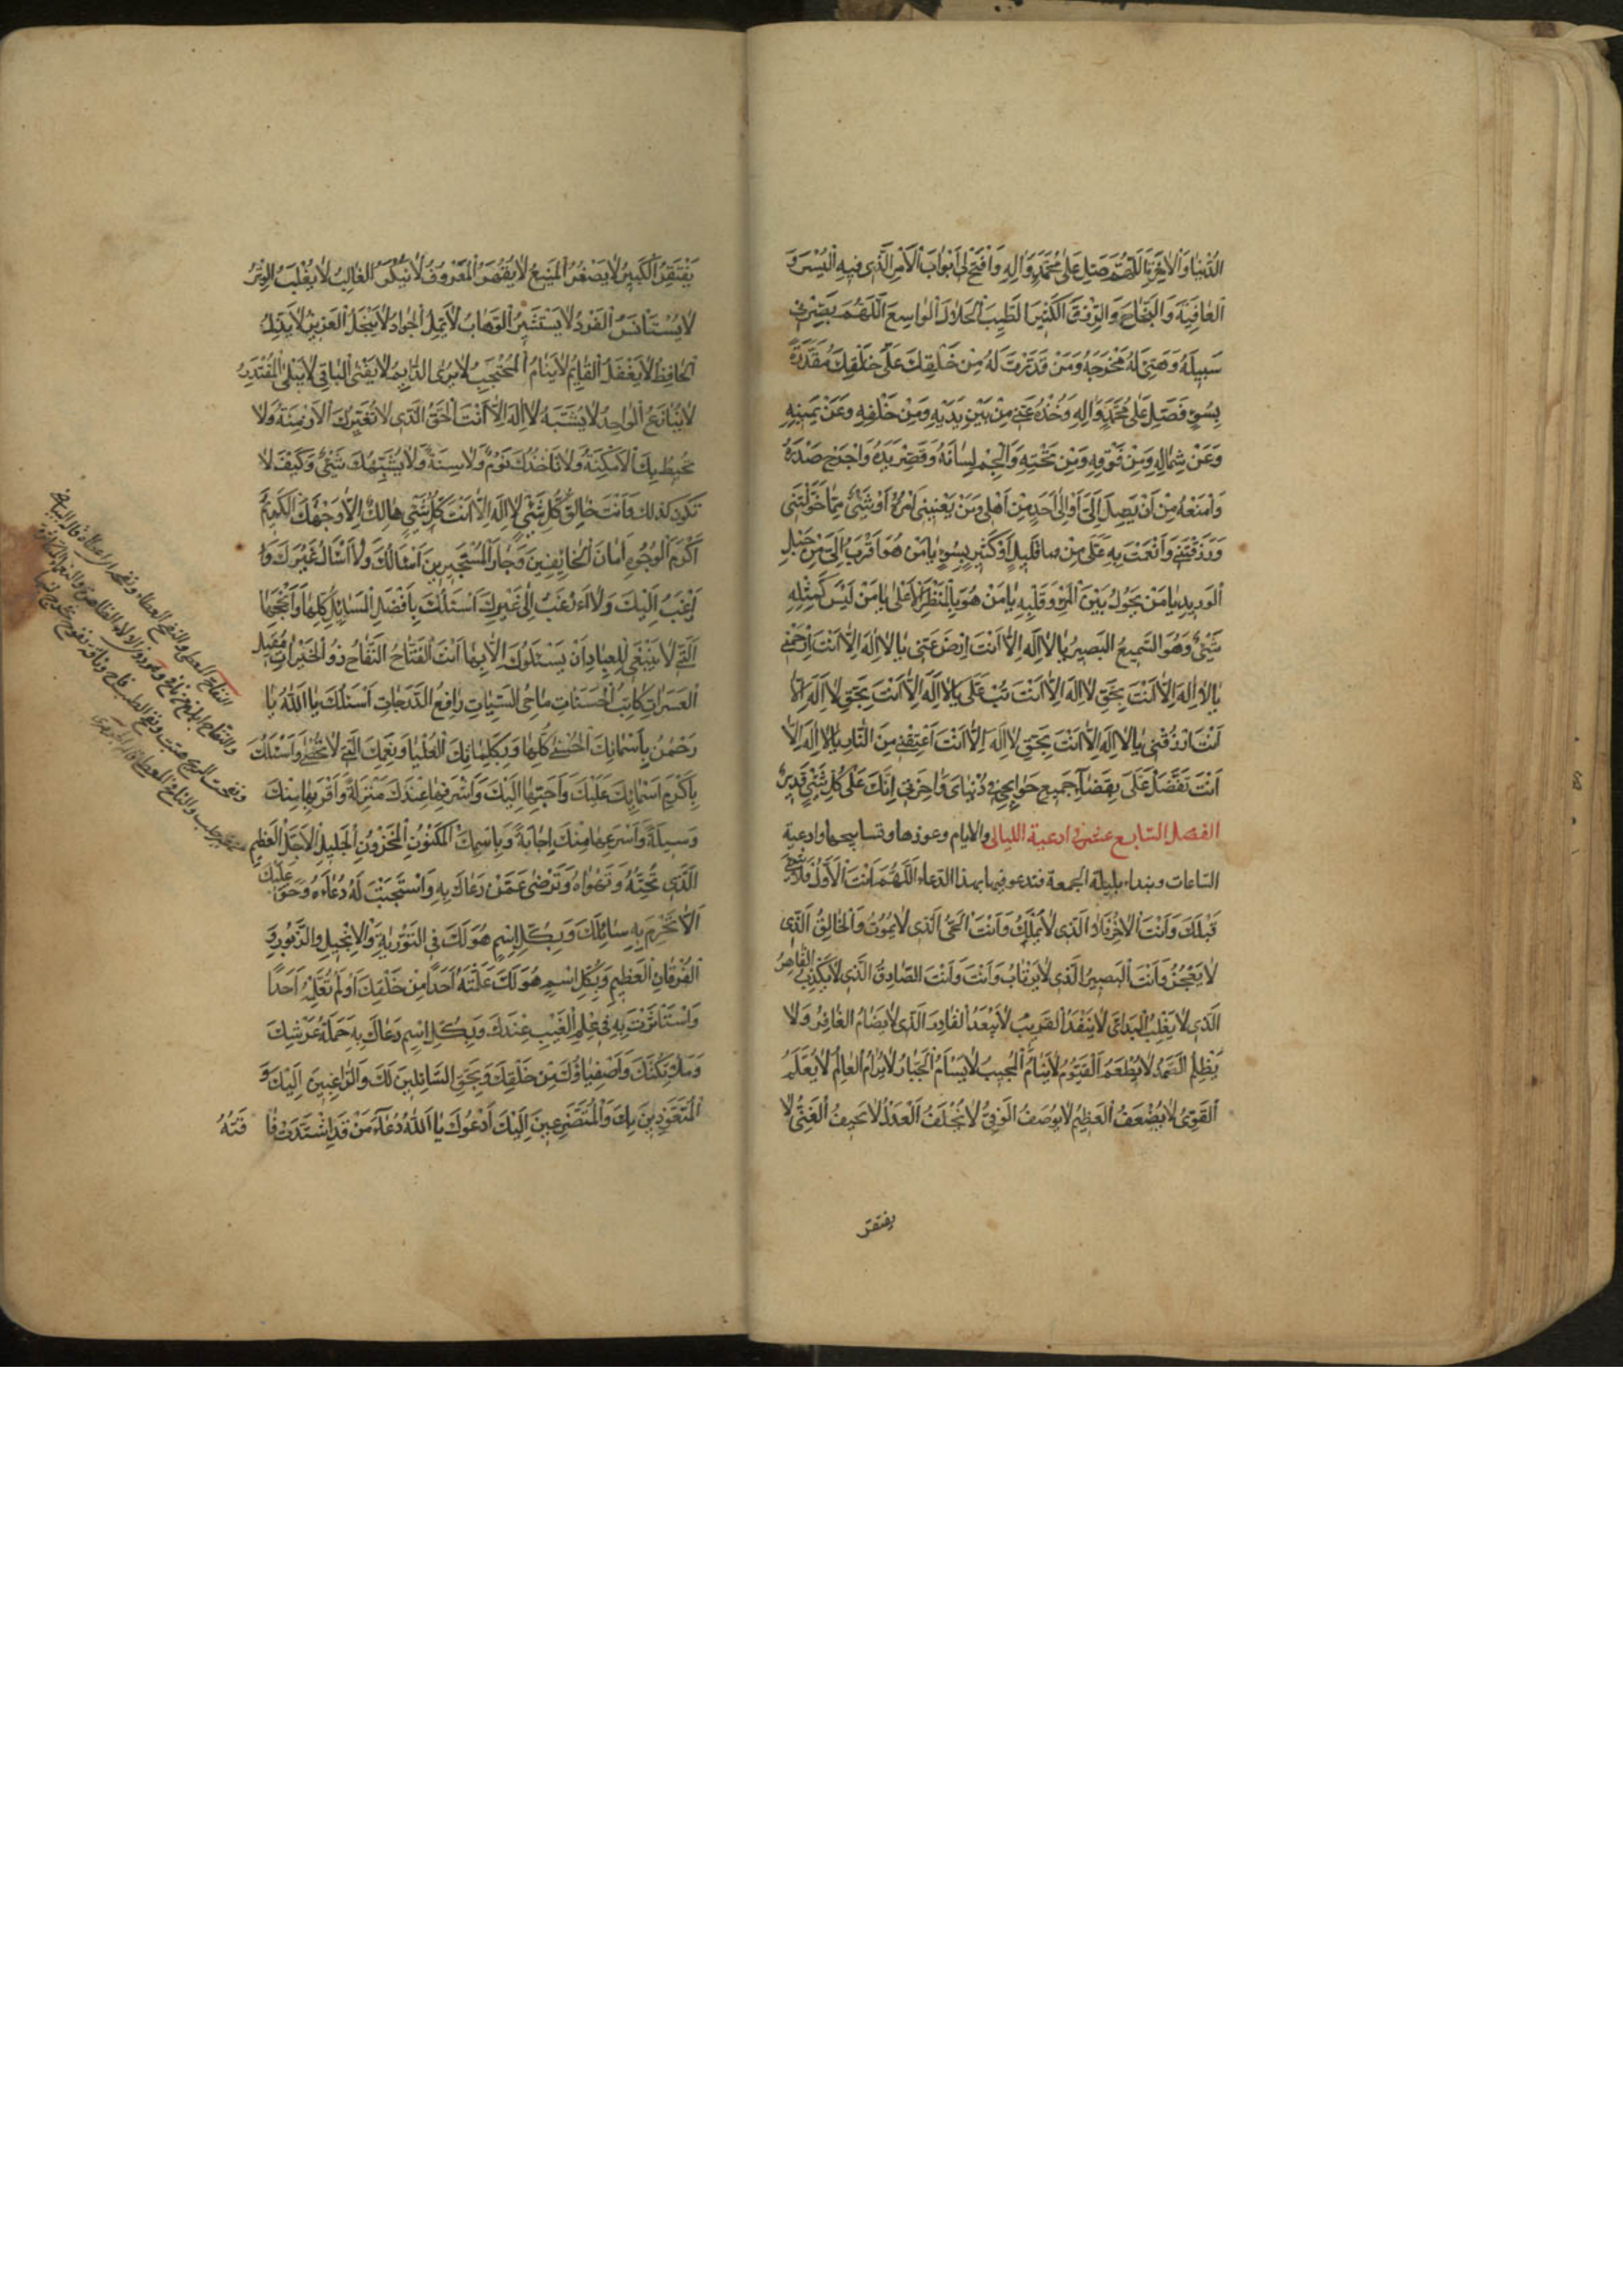 الدُّنْيَا وَالْآخِرَةِ اَللّٰهُمَّ صَلِّ عَلٰى مُحَمَّدٍ وَاٰلِهِ وَافْتَحْ لِي اَبْوَابَ الْاَمْرِ الَّذِي فِيهِ الْيُسْرَ وَ
الْعَافِيَةَ وَالنَّجَاحَ وَالرِّزْقَ الْكَثِيرَ الطَّيِّبَ الْحَلَالَ الْوَاسِعَ اَللّٰهُمَّ بَصِّرْنِي
سَبِيلَهُ وَهَيِّئْ لِي مَخْرَجَهُ وَمَنْ قَدَّرْتَ لَهُ مِنْ خَلْقِكَ عَلَيَّ مَقْدُرَةً
بِسُوءٍ فَصَلِّ عَلٰى مُحَمَّدٍ وَاٰلِهِ وَخُذْهُ عَنِّي مِنْ بَيْنِ يَدَيْهِ وَمِنْ خَلْفِهِ وَعَنْ يَمِينِهِ
وَعَنْ شِمَالِهِ وَمِنْ فَوْقِهِ وَمِنْ تَحْتِهِ وَاَلْجِمْ لِسَانَهُ وَقَصِّرْ يَدَهُ وَاحْرِجْ صَدْرَهُ
وَامْنَعْهُ مِنْ اَنْ يَصِلَ اِلَيَّ اَوْ اِلٰى اَحَدٍ مِنْ اَهْلِي وَمَنْ يَعْنِينِي اَمْرُهُ اَوْ شَيْءٍ مِمَّا خَوَّلْتَنِي
وَرَزَقْتَنِي وَاَنْعَمْتَ بِهِ عَلَيَّ مِنْ قَلِيلٍ اَوْ كَثِيرٍ بِسُوءٍ يَا مَنْ هُوَ اَقْرَبُ اِلَيَّ مِنْ حَبْلِ
الْوَرِيدِ يَا مَنْ يَحُولُ بَيْنَ الْمَرْءِ وَقَلْبِهِ يَا مَنْ هُوَ بِالْمَنْظَرِ الْاَعْلٰى يَا مَنْ لَيْسَ كَمِثْلِهِ
شَيْءٌ وَهُوَ السَّمِيعُ الْبَصِيرُ يَا لَا اِلٰهَ اِلَّا اَنْتَ اِرْضَ عَنِّي يَا لَا اِلٰهَ اِلَّا اَنْتَ اِرْحَمْنِي
يَا لَا اِلٰهَ اِلَّا اَنْتَ بِحَقِّ لَا اِلٰهَ اِلَّا اَنْتَ تُبْ عَلَيَّ يَا لَا اِلٰهَ اِلَّا اَنْتَ بِحَقِّ لَا اِلٰهَ اِلَّا
اَنْتَ ارْزُقْنِي يَا لَا اِلٰهَ اِلَّا اَنْتَ بِحَقِّ لَا اِلٰهَ اِلَّا اَنْتَ اَعْتِقْنِي مِنَ النَّارِ يَا لَا اِلٰهَ اِلَّا
اَنْتَ تَفَضَّلْ عَلَيَّ بِقَضَاءِ جَمِيعِ حَوَائِجِي فِي دُنْيَايَ وَاٰخِرَتِي اِنَّكَ عَلٰى كُلِّ شَيْءٍ قَدِيرٌ
الفصل السابع عشر في ادعية الليالي والايام وعوذها وتسابيحها وادعية
الساعات ونبداء بليلة الجمعة فتدعو فيها بهذا الدعاء اَللّٰهُمَّ اَنْتَ الْاَوَّلُ فَلَا شَيْءَ
قَبْلَكَ وَاَنْتَ الْاٰخِرُ الَّذِي لَا يَهْلِكُ وَاَنْتَ الْحَيُّ الَّذِي لَا يَمُوتُ وَالْخَالِقُ الَّذِي
لَا يَعْجُزُ وَاَنْتَ الْبَصِيرُ الَّذِي لَا يَرْتَابُ وَاَنْتَ الصَّادِقُ الَّذِي لَا يَكْذِبُ الْقَاهِرُ
الَّذِي لَا يُغْلَبُ الْبَدِيءُ لَا يَنْفَدُ الْقَرِيبُ لَا يَبْعُدُ الْقَادِرُ الَّذِي لَا يُضَامُ الْغَافِرُ وَلَا
يَظْلِمُ الصَّمَدُ لَا يُطْعَمُ الْقَيُّومُ لَا يَنَامُ الْمُجِيبُ لَا يَسْاَمُ الْجَبَّارُ لَا يُرَامُ الْعَالِمُ لَا يُعَلَّمُ
الْقَوِيُّ لَا يُضْعَفُ الْعَظِيمُ لَا يُوصَفُ الْوَفِيُّ لَا يُخْلِفُ الْعَدْلُ لَا يَحِيفُ الْغَنِيُّ لَا
يفتقر
يَفْتَقِرُ الْكَبِيرُ لَا يَصْغُرُ الْمَنِيعُ لَا يُقْهَرُ الْمَعْرُوفُ لَا يُنْكَرُ الْغَالِبُ لَا يُغْلَبُ الْوِتْرُ
لَا يَسْتَأْنِسُ الْفَرْدُ لَا يَسْتَشِيرُ الْوَهَّابُ لَا يَمَلُّ الْجَوَادُ لَا يَبْخَلُ الْعَزِيزُ لَا يَذِلُّ
الْحَافِظُ لَا يَغْفَلُ الْقَائِمُ لَا يَنَامُ الْمُحْتَجِبُ لَا يُرٰى الدَّائِمُ لَا يَفْنٰى الْبَاقِي لَا يَبْلٰى الْمُقْتَدِرُ
لَا يُنَازَعُ الْوَاحِدُ لَا يُشَبَّهُ لَا اِلٰهَ اِلَّا اَنْتَ الْحَقُّ الَّذِي لَا تُغَيِّرُكَ الْاَزْمِنَةُ وَلَا
تُحِيطُ بِكَ الْاَمْكِنَةُ وَلَا تَأْخُذُكَ نَوْمٌ وَلَا سِنَةٌ وَلَا يُشْبِهُكَ شَيْءٌ وَكَيْفَ لَا
تَكُونُ كَذٰلِكَ وَاَنْتَ خَالِقُ كُلِّ شَيْءٍ لَا اِلٰهَ اِلَّا اَنْتَ كُلُّ شَيْءٍ هَالِكٌ اِلَّا وَجْهَكَ الْكَرِيمَ
اَكْرَمَ الْوُجُوهِ اَمَانَ الْخَائِفِينَ وَجَارَ الْمُسْتَجِيرِينَ اَسْاَلُكَ وَلَا اَسْاَلُ غَيْرَكَ وَ
اَرْغَبُ اِلَيْكَ وَلَا اَرْغَبُ اِلٰى غَيْرِكَ اَسْئَلُكَ بِاَفْضَلِ الْمَسَائِلِ كُلِّهَا وَاَنْجَحِهَا
الَّتِي لَا يَنْبَغِي لِلْعِبَادِ اَنْ يَسْئَلُوكَ اِلَّا بِهَا اَنْتَ الْفَتَّاحُ النَّفَّاحُ ذُو الْخَيْرَاتِ مُقِيلُ
الْعَثَرَاتِ كَاتِبُ الْحَسَنَاتِ مَاحِي السَّيِّئَاتِ رَافِعُ الدَّرَجَاتِ اَسْئَلُكَ يَا اَللّٰهُ يَا
رَحْمٰنُ بِاَسْمَائِكَ الْحُسْنٰى كُلِّهَا وَبِكَلِمَاتِكَ الْعُلْيَا وَنِعَمِكَ الَّتِي لَا تُحْصٰى وَاَسْئَلُكَ
بِاَكْرَمِ اَسْمَائِكَ عَلَيْكَ وَاَحَبِّهَا اِلَيْكَ وَاَشْرَفِهَا عِنْدَكَ مَنْزِلَةً وَاَقْرَبِهَا مِنْكَ
وَسِيلَةً وَاَسْرَعِهَا مِنْكَ اِجَابَةً وَبِاسْمِكَ الْمَكْنُونِ الْمَخْزُونِ الْجَلِيلِ الْاَجَلِّ الْعَظِيمِ
الَّذِي تُحِبُّهُ وَتَهْوَاهُ وَتَرْضٰى عَمَّنْ دَعَاكَ بِهِ وَاسْتَجَبْتَ لَهُ دُعَاءَهُ وَحَقٌّ عَلَيْكَ
اَلَّا تَحْرِمَ بِهِ سَائِلَكَ وَبِكُلِّ اسْمٍ هُوَ لَكَ فِي التَّوْرٰيةِ وَالْاِنْجِيلِ وَالزَّبُورِ وَ
الْفُرْقَانِ الْعَظِيمِ وَبِكُلِّ اسْمٍ هُوَ لَكَ عَلَّمْتَهُ اَحَدًا مِنْ خَلْقِكَ اَوْ لَمْ تُعَلِّمْهُ اَحَدًا
وَاسْتَأْثَرْتَ بِهِ فِي عِلْمِ الْغَيْبِ عِنْدَكَ وَبِكُلِّ اسْمٍ دَعَاكَ بِهِ حَمَلَةُ عَرْشِكَ
وَمَلَائِكَتُكَ وَاَصْفِيَاؤُكَ مِنْ خَلْقِكَ وَبِحَقِّ السَّائِلِينَ لَكَ وَالرَّاغِبِينَ اِلَيْكَ وَ
الْمُتَعَوِّذِينَ بِكَ وَالْمُتَضَرِّعِينَ اِلَيْكَ اَدْعُوكَ يَا اَللّٰهُ دُعَاءَ مَنْ قَدِ اشْتَدَّتْ فَاقَتُهُ